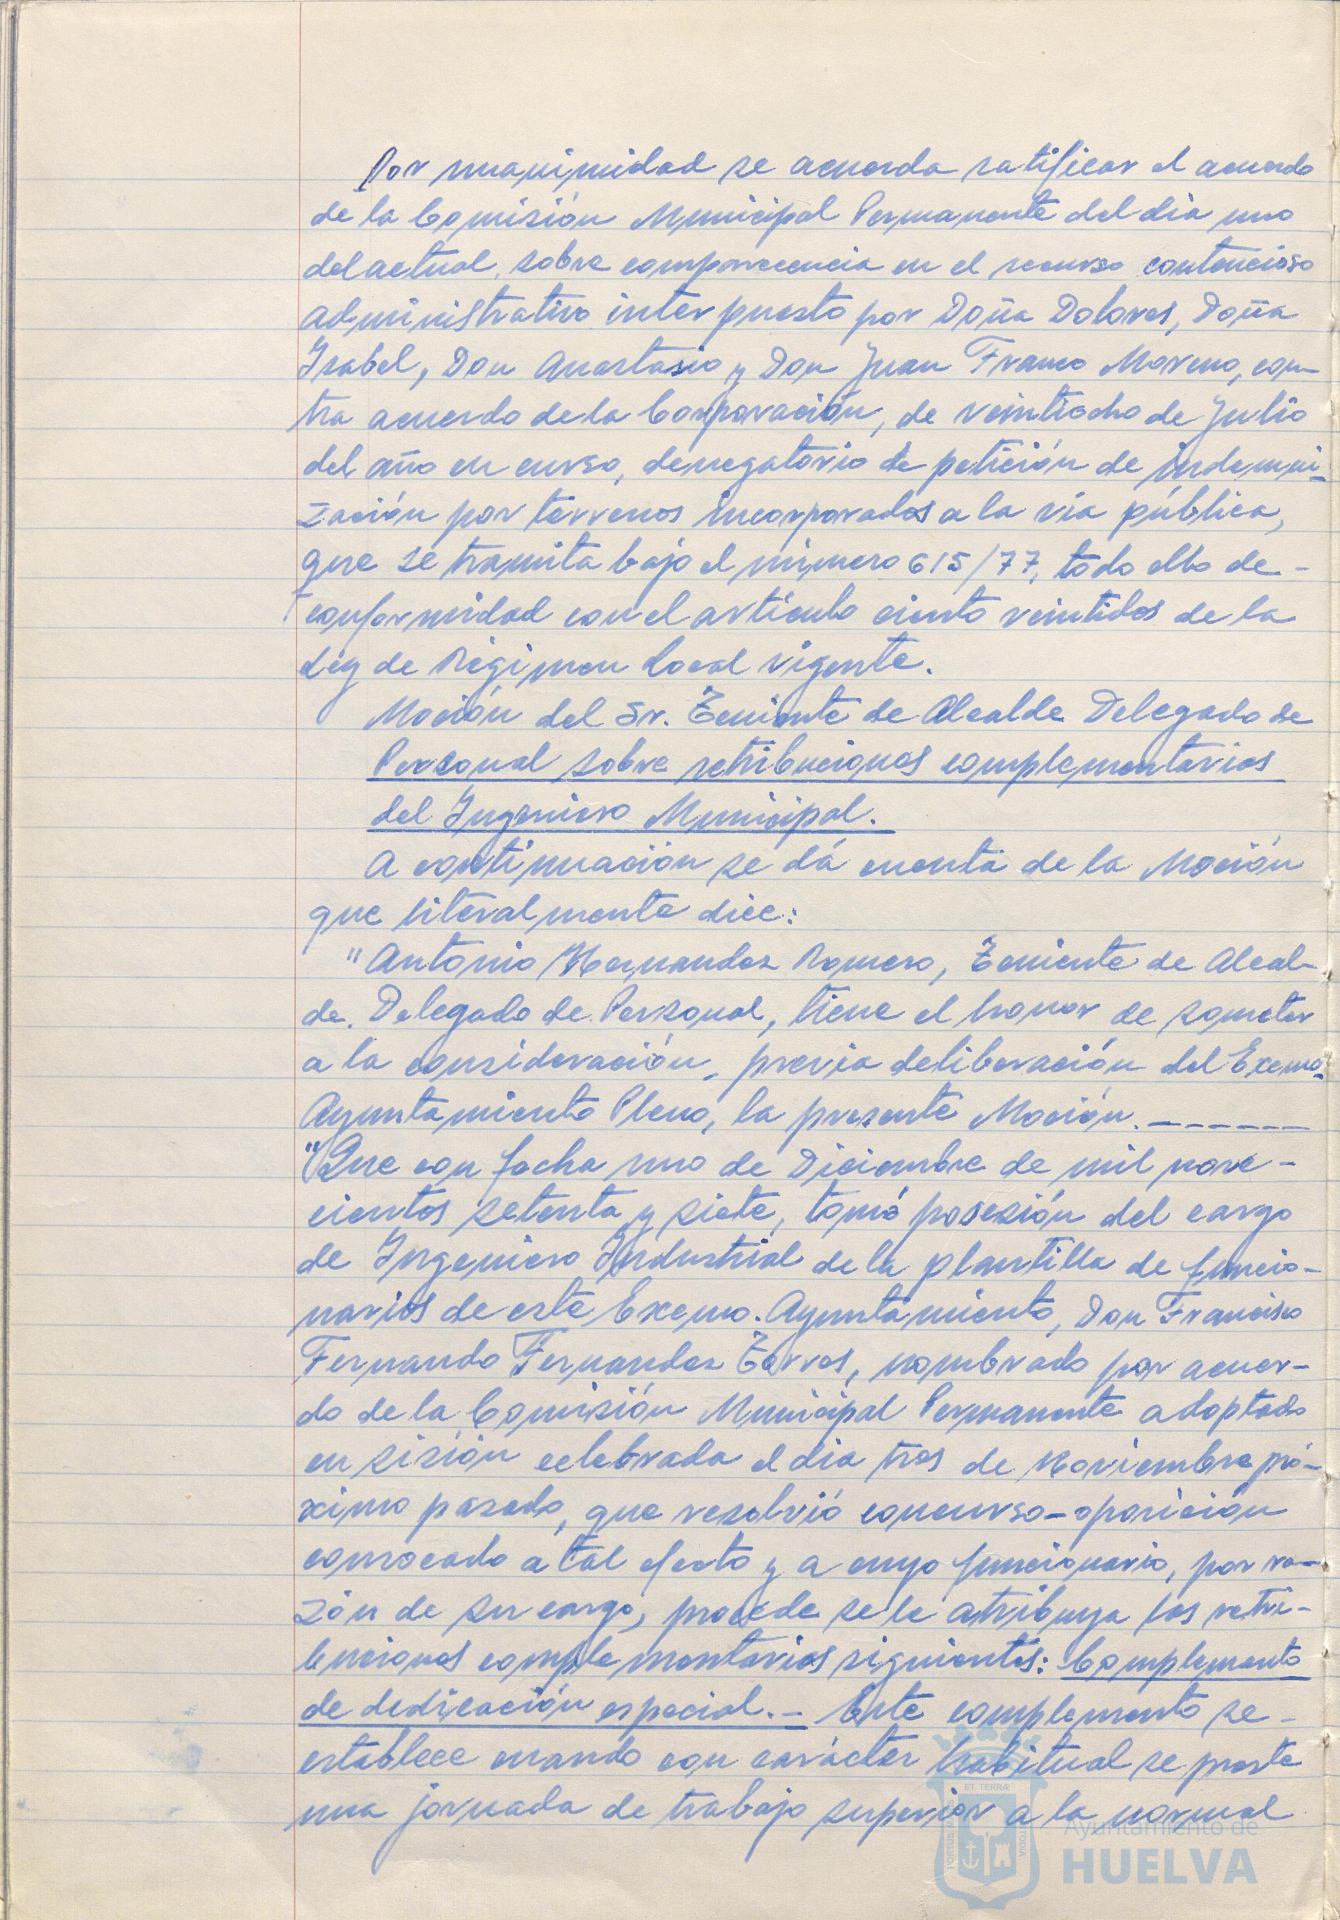 Por unanimidad se acuerda ratificar el acuerdo
de la Comisión Municipal Permanente del dia uno
del actual, sobre comparecencia en el recurso contencioso
administrativo interpuesto por Doña Dolores, Doña
Isabel, Don Anastasio y Don Juan Franco Moreno, con-
tra acuerdo de la Corporación, de veintiocho de Julio
del año en curso, denegatorio de petición de indemni-
zación por terrenos incorporados a la via pública,
que se tramita bajo el número 615/77, todo ello de-
conformidad con el articulo ciento veintidos de la
Ley de Régimen Local vigente.
Moción del Sr. Teniente de Alcalde Delegado de
Personal sobre retribuciones complementarias
del Ingeniero Municipal.
A continuación se dá cuenta de la Moción
que literalmente dice:
"Antonio Hernandez Romero, Teniente de Alcal-
de. Delegado de Personal, tiene el honor de someter
a la consideración, previa deliberación del Excmo.
Ayuntamiento Pleno, la presente Moción.-------
"Que con fecha uno de Diciembre de mil nove-
cientos setenta y siete, tomó posesión del cargo
de Ingeniero Industrial de la plantilla de funcio-
narios de este Excmo. Ayuntamiento, Don Francisco
Fernando Fernandez Torres, nombrado por acuer-
do de la Comisión Municipal Permanente adoptado
en sisión celebrada el dia tres de Noviembre pró-
ximo pasado, que resolvió concurso-oposición
convocado a tal efecto y a cuyo funcionario, por ra-
zón de su cargo, procede se le atribuya las retri-
buciones complementarias siguientes: Complemento
de dedicación especial.- Este complemento se-
establece cuando con carácter habitual se preste
una jornada de trabajo superior a la normal
Ayuntamiento de
HUELVA